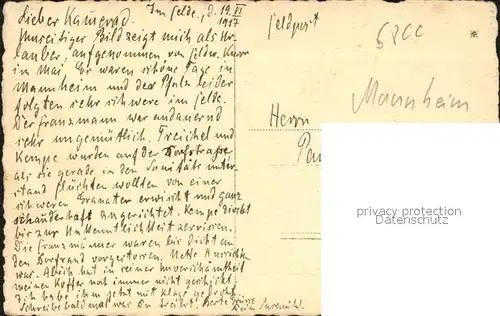 Im Felde, d. 19. VI
1917
Lieber Kamerad.
Umseitiger Bild zeigt mich als Ur-
lauber, aufgenommen von
in Mai. Er waren schöne Tage in
Mannheim und der Pfalz leider
folgten sehr schwere im Felde.
Der Franzmann war andauernd
sehr ungemütlich. Treichel und
Kempe wurden auf der Dorfstrasse
als sie gerade in den Sanitäts unter-
stand flüchten wollten von einer
schweren Granaten erwischt und ganz
schauderhaft angerichtet. Kempe direkt
bis zur Unkenntlichkeit zerrissen.
Die Franzmänner waren bis dicht an
den Dorfrand vorgestossen. Nette Aussichten
war. hat in seiner Unverschämtheit
meinen Koffer noch immer nicht geschickt.
Ich habe ihm jetzt mit Klage gedroht.
Schreibe bald mal was Du treibst. Beste Grüsse
Dein
Feldpost
5800
*
Mannheim
Herrn
privacy protection
(samplesXXL)